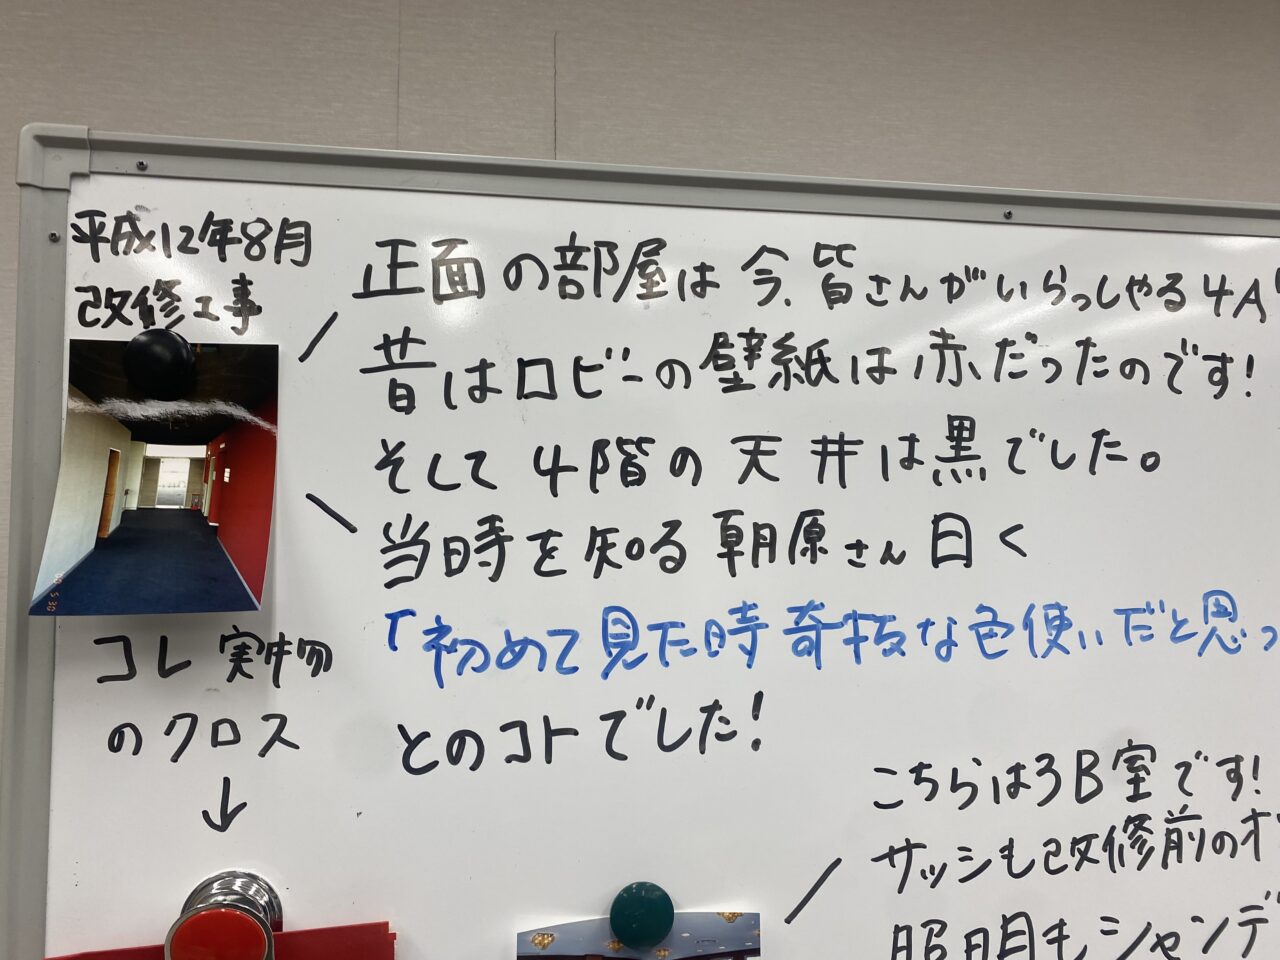 平成12年8月
改修工事
正面の部屋は今、皆さんがいらっしゃる4A
昔はロビーの壁紙は赤だったのです!
そして4階の天井は黒でした。
当時を知る朝原さん曰く
「初めて見た時奇抜な色使いだと思っ
とのコトでした!
コレ実物
のクロス
↓
こちらは3B室です!
サッシも改修前の
照明もシャンデ